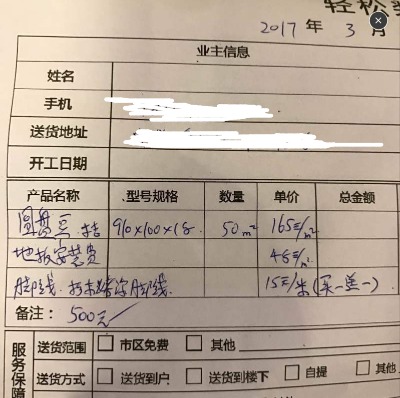 轻松
2017 年 3 月
业主信息
姓名
手机
送货地址
开工日期
产品名称 型号规格 数量 单价 总金额
圆盘豆 910×100×18 50m² 165元/m²
地板安装费 48元/m²
脚线 脚线 15元/米(买一送一)
备注: 500元
服务保障
送货范围 □ 市区免费 □ 其他
送货方式 □ 送货到户 □ 送货到楼下 □ 自提 □ 其他